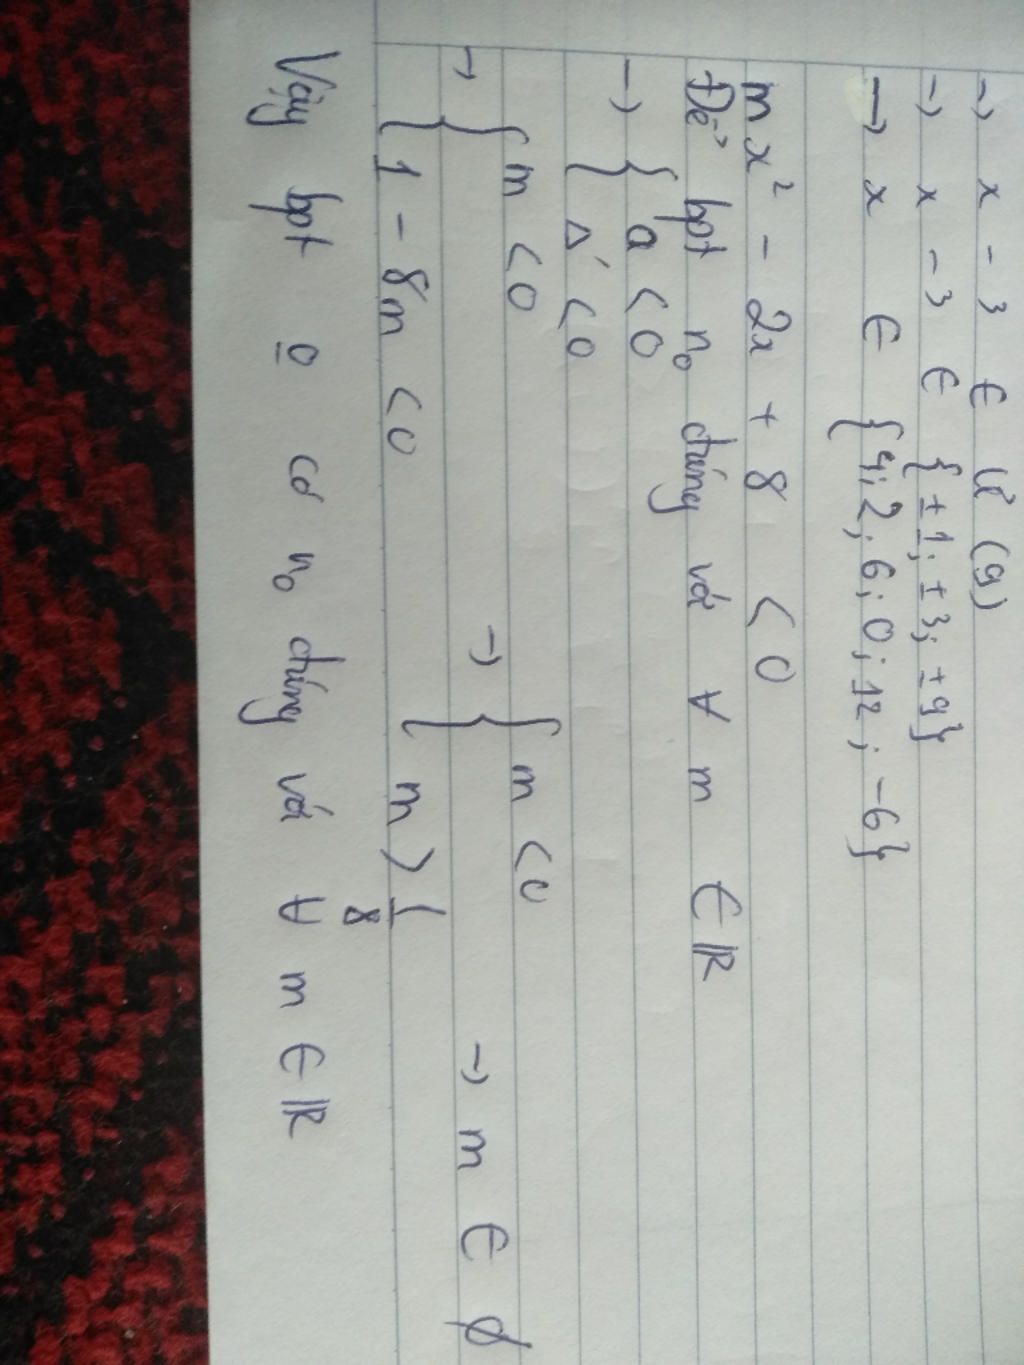 → x - 3 ∈ Ư (9)
→ x - 3 ∈ {±1; ±3; ±9}
→ x ∈ {4; 2; 6; 0; 12; -6}
mx² - 2x + 8 < 0
Để bpt n₀ đúng với ∀ m ∈ ℝ
→ { a < 0
Δ' < 0
→ { m < 0 → { m < 0 → m ∈ ∅
1 - 8m < 0 m > 1/8
Vậy bpt o có n₀ đúng với ∀ m ∈ ℝ